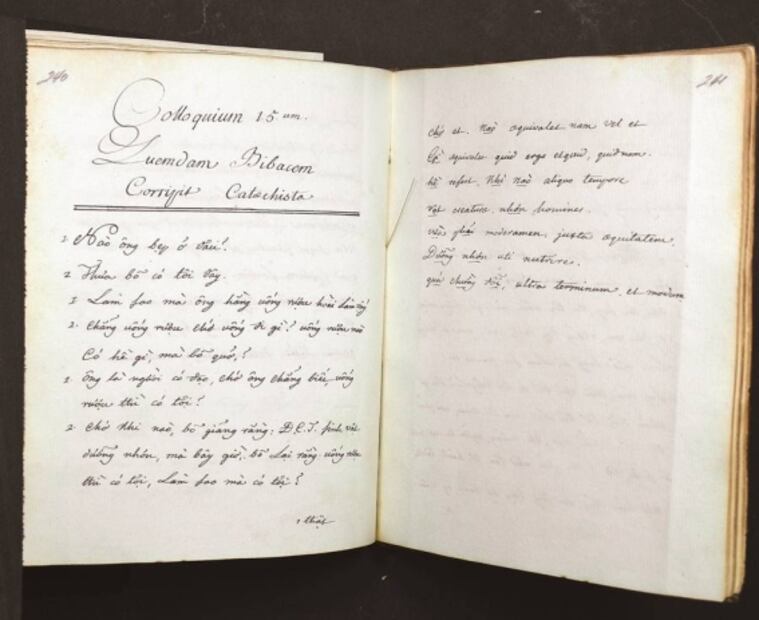 240
Colloquium 15 um.
Quemdam Bibacem
Corripit Catechista
1 Nào ông bẹp ở đâu?
2 Thưa bõ có tôi đây.
1 Làm sao mà ông hằng uống rượu hoài làm vậy
2. Chẳng uống rượu chớ uống đí gì? uống rượu nào
Có hề gì, mà bõ quở,?
1. ông là người có đạo, chớ ông chẳng biết, uống
rượu thì có tội?
2. Chớ khi nào, bõ giảng rằng: D.C.J. sinh vật
dưỡng nhơn, mà bây giờ, bõ lại rằng uống rượu
thì có tội, Làm sao mà có tội?
1 thật
241
chớ et. naò equivalet nam vel et
Có equivalu quid ergo elgeud, quidnam.
hề refert. Khi naò aliquo tempore
vật creaturæ. nhơn homines.
vừa phải moderamen, juxta equitatem.
Dưỡng nhơn uti nutrire.
quá chưng, ultra terminum, et modum